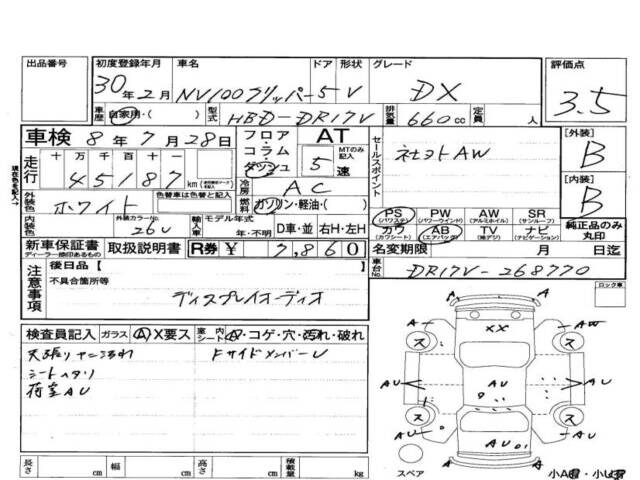 出品番号 初度登録年月 車名 ドア 形状 グレード 評価点
30年2月 NV100クリッパー 5 V DX 3.5
車歴 自家用・( ) 型式 HBD-DR17V 排気量 660cc 定員 人
車検 8年7月28日 フロア コラム ダッシュ AT MTのみ記入 5速 セールスポイント 社外AW
[外装] B
走行 十 万 千 百 十 一
45187 km
現在色を記入 外装色 色替車は色替と記入 ホワイト 冷房 AC
燃料 ガソリン・軽油・( )
[内装] B
内装色 外装カラーNo. 26U 輸入車 モデル年式 年・不明 D車・並 右H・左H
PS (パワステ) PW (パワーウインド) AW (アルミホイル) SR (サンルーフ)
カワ (カワシート) AB (エアバック) TV (地デジ) ナビ (ナビゲーション) 純正品のみ丸印
新車保証書 ディーラー捺印あるもの 取扱説明書 R券 ¥ 7,860 名変期限 月 日迄
注意事項 後日品 [ ]
車台No. DR17V-268770
不具合箇所等
ディスプレイオーディオ
ロック車
検査員記入 ガラス A X要ス 室内 シート A・コゲ・穴・汚れ・破れ
天張りヤニ汚れ FサイドメンバーU
シートヘタリ
荷室AU
A A
XX
A AW
ス ス
AU AU AU
ス ス
AU AU AU
A
長さ cm 幅 cm 高さ cm 積載量 kg
スペア 小A・小U